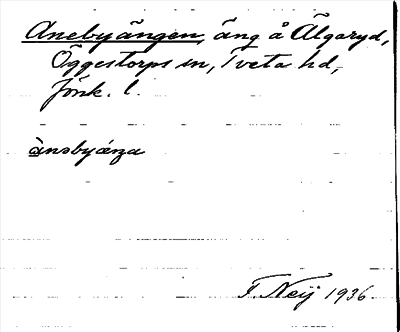 Anebyängen, äng å Älgaryd,
Öggestorps sn, Tveta hd,
Jönk. l.
ànəbyæŋa
F. Neij 1936